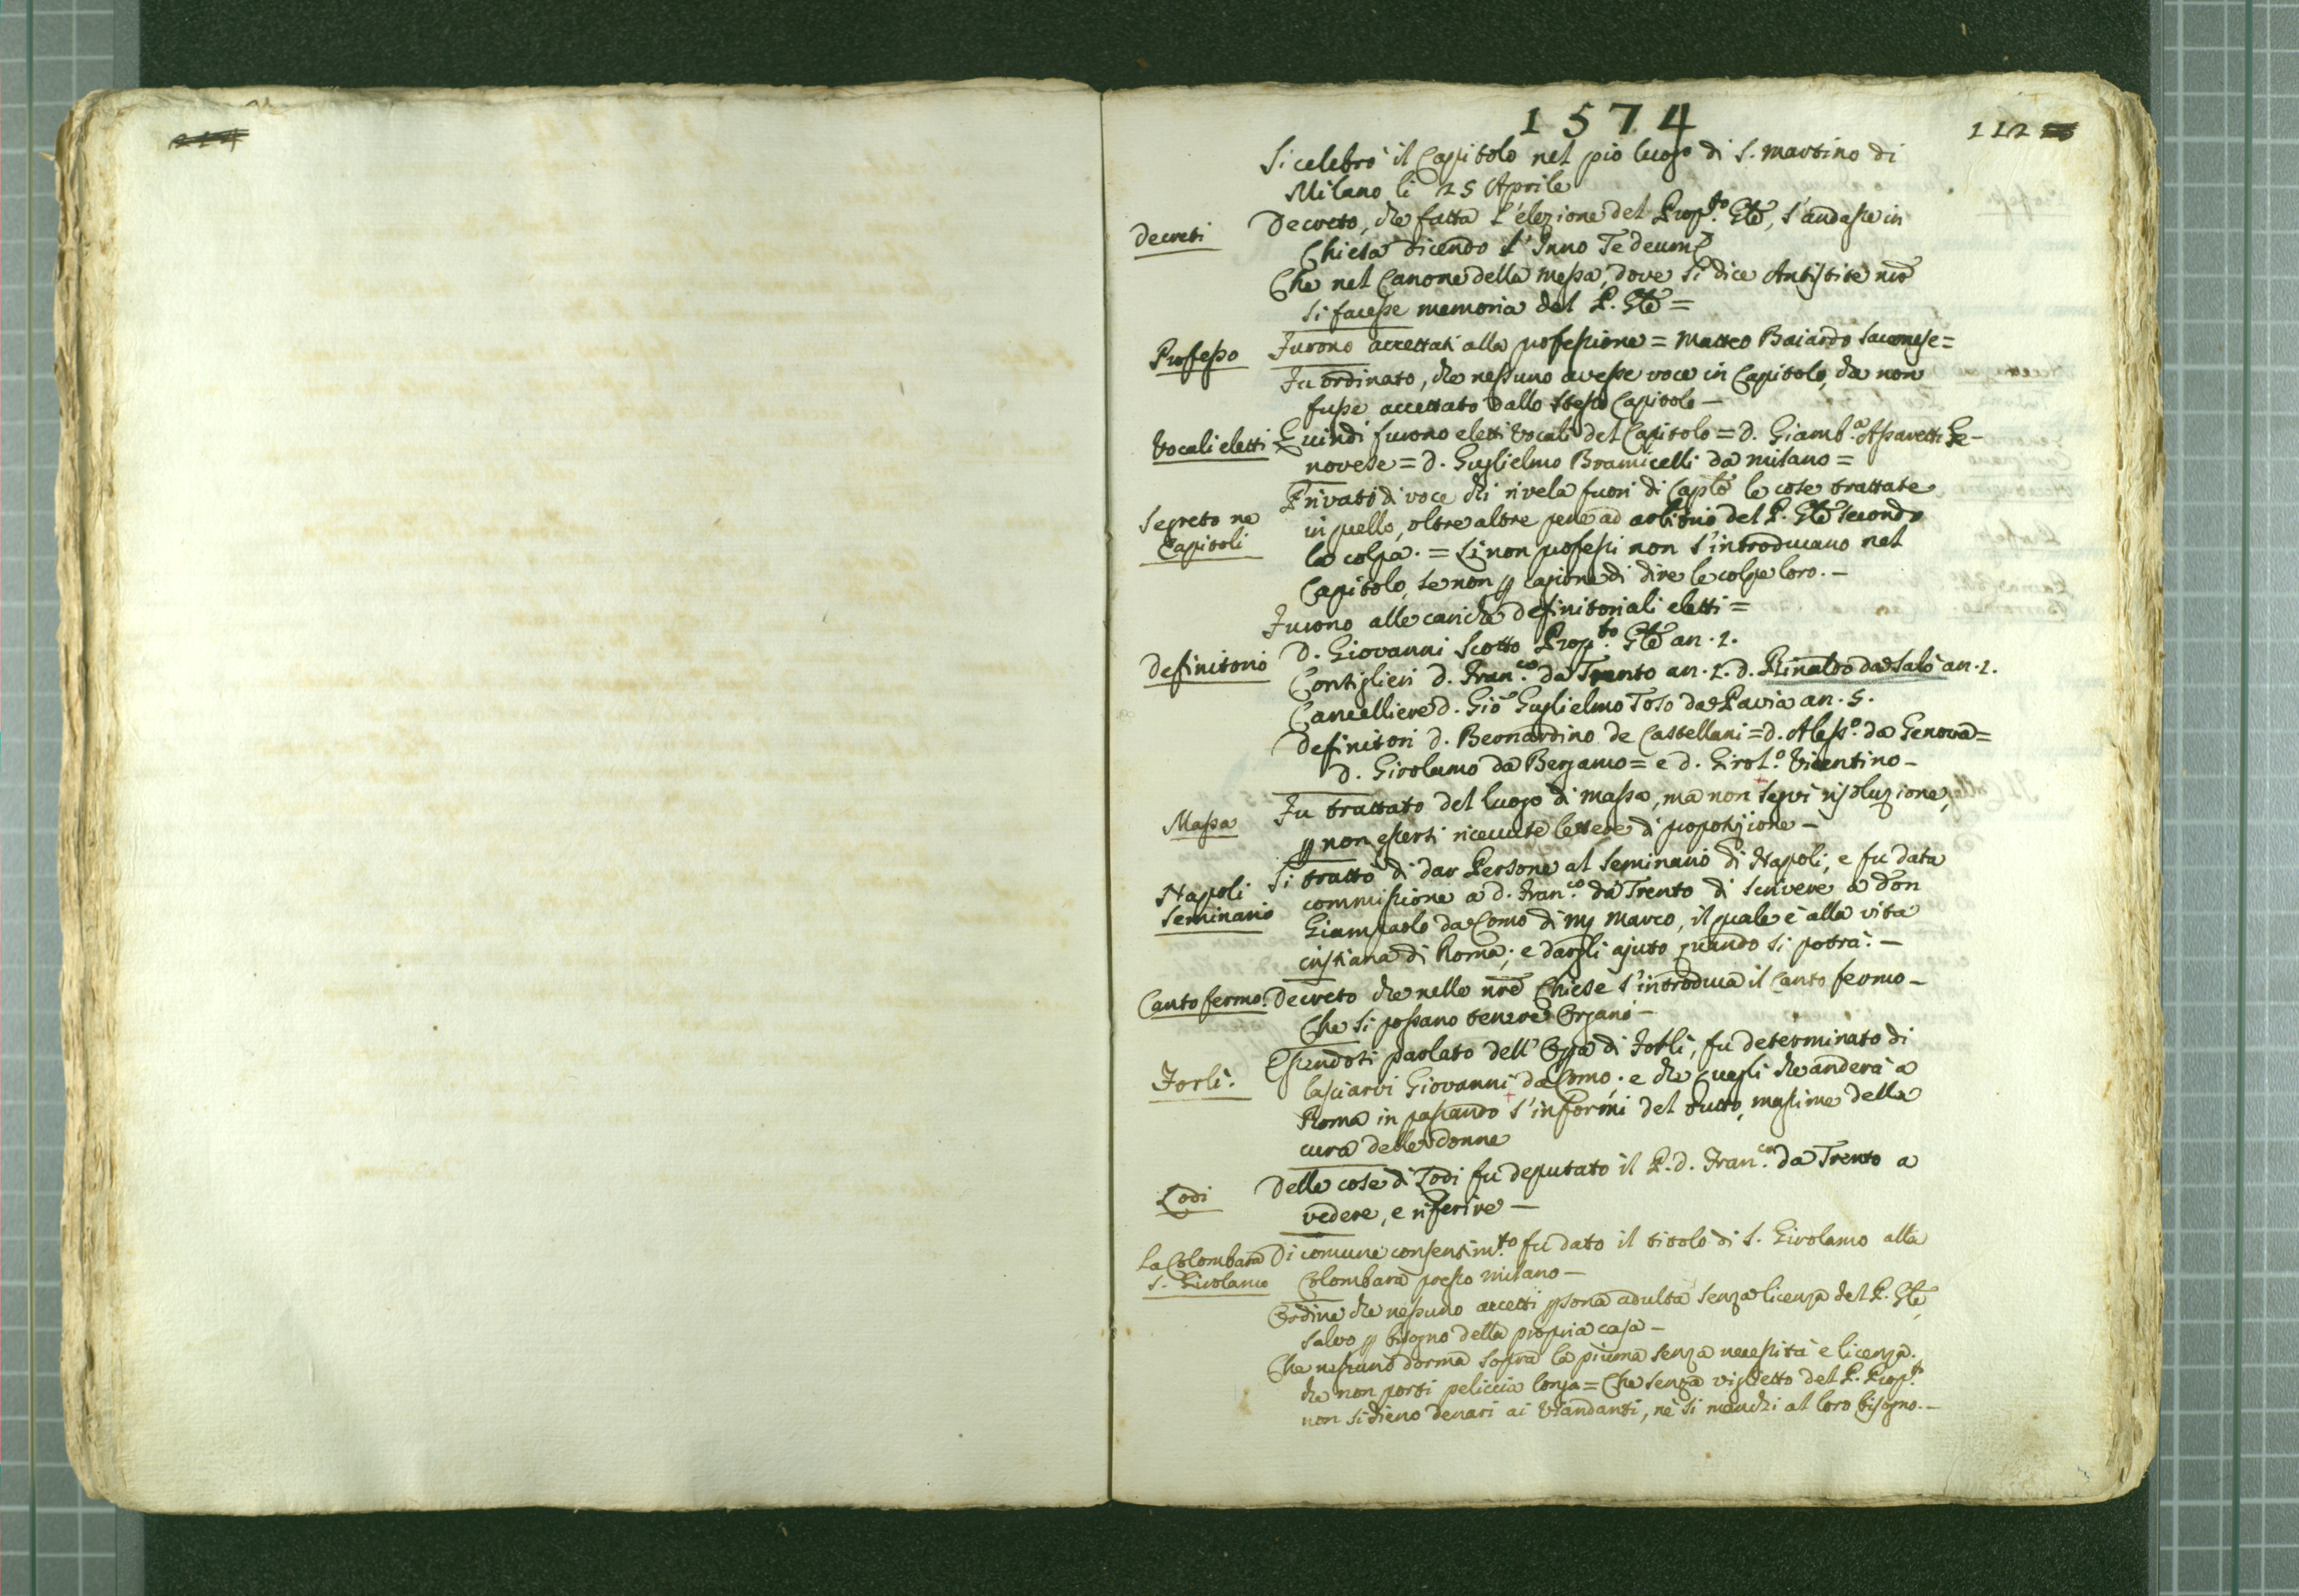 1574
112
Si celebrò il Capitolo nel pio luogo di S. Martino di
Milano li 25 Aprile
Decreti
Decreto, che fatta l'elezione del Prop.to Gñle, s'andasse in
Chiesa dicendo l'Inno Te deum
Che nel Canone della Messa, dove si dice Antistite nrõ
si facesse memoria del P. Gñle =
Professo
Furono accettati alla professione = Matteo Baiardo Savonese =
Fu ordinato, che nessuno avesse voce in Capitolo, che non
fusse accettato dallo stesso Capitolo —
Vocali eletti
Quindi furono eletti Vocali del Capitolo = d. Giamb.a Assaretti Ge-
novese = d. Guglielmo Bramicelli da Milano =
Segreto ne
Capitoli
Privato di voce chi rivela fuori di Caplõ le cose trattate
in quello, oltre altre pene ad arbitrio del P. Gñle secondo
la colpa. = Li non professi non s'introducano nel
Capitolo, se non p cagione di dire le colpe loro. —
Furono alle cariche definitoriali eletti =
Definitorio
D. Giovanni Scotto Prop.to Gñle an. 1.
Consiglieri d. Fran.co da Trento an. 1. d. Rinaldo da Salò an. 1.
Cancelliere d. Gio Guglielmo Toso da Pavia an. 5.
Definitori d. Bernardino de Castellani = d. Aless.o da Genova =
d. Girolamo da Bergamo = e d. Girol.o Vicentino —
Massa
Fu trattato del luogo di Massa, ma non seguì risoluzione,
p non essersi ricevute lettere di proposizione —
Napoli
Seminario
Si trattò di dar Persone al Seminario di Napoli, e fu data
commissione a d. Fran.co da Trento di scrivere a Don
Giampaolo da Como di Mʃ Marco, il quale è alla vita
cristiana di Roma; e dargli ajuto quando si potrà. —
Canto fermo.
Decreto che nelle nrẽ Chiese s'introduca il Canto fermo —
Che si possano tenere Organi —
Forlì.
Essendosi parlato dell'Opa di Forlì, fu determinato di
lasciarvi Giovanni da Como; e che quegli che anderà a
Roma in passando s'informi del tutto, massime della
cura delle donne
Lodi
Delle cose di Lodi fu deputato il P. d. Fran.co da Trento a
vedere, e riferire —
La Colombara
S. Girolamo
Di comune consensim.to fu dato il titolo di S. Girolamo alla
Colombara presso Milano —
Ordine che nessuno accetti psona adulta senza licenza del P. Gñle
salvo p bisogno della propria casa —
Che nessuno dorma sopra la piuma senza necessità e licenza.
che non porti peliccia longa = Che senza viglietto del P. Prop.to
non si dieno denari ai Viandanti, nè si manchi al loro bisogno. —